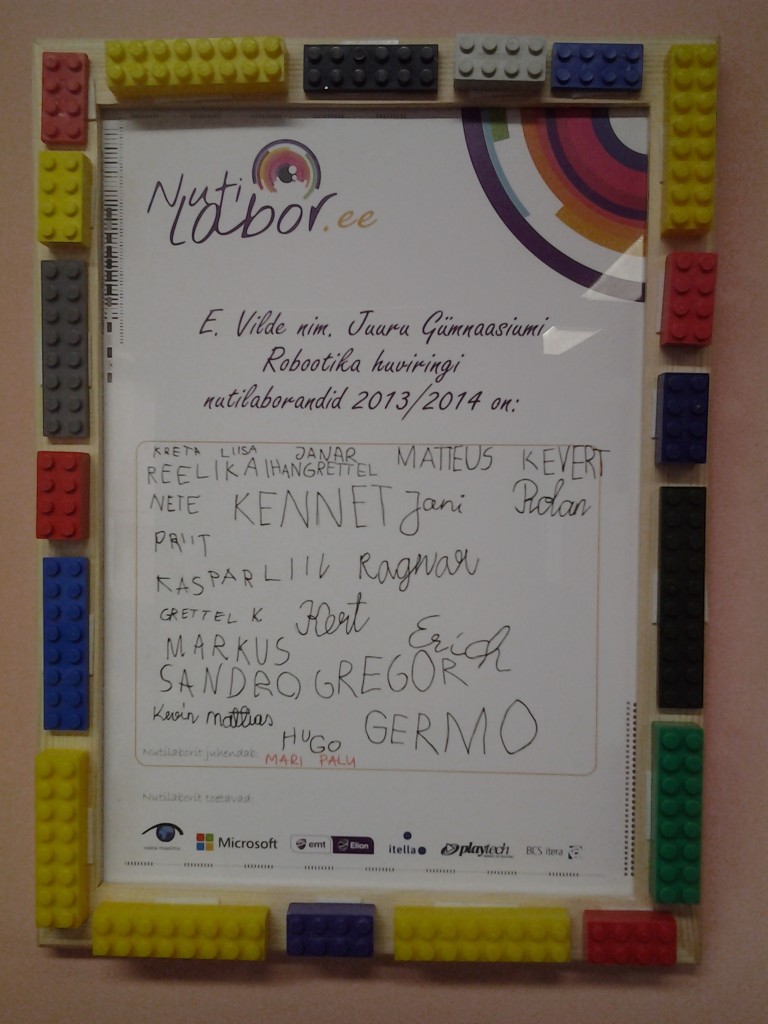 Nuti
labor.ee
E. Vilde nim. Juuru Gümnaasiumi
Robootika huviringi
nutilaborandid 2013/2014 on:
KRETA LIISA JANAR MATTEUS KEVERT
REELIKA IHAN GRETTEL
NETE KENNET Jani Rolan
PRIIT
KASPAR LIIL Ragnar
GRETTEL K Kert
MARKUS Erich
SANDRO GREGOR
Kevin mattias
HUGO GERMO
Nutilaborit juhendab:
MARI PALU
Nutilaborit toetavad:
vaata maailma Microsoft emt Elion itella playtech BCS itera